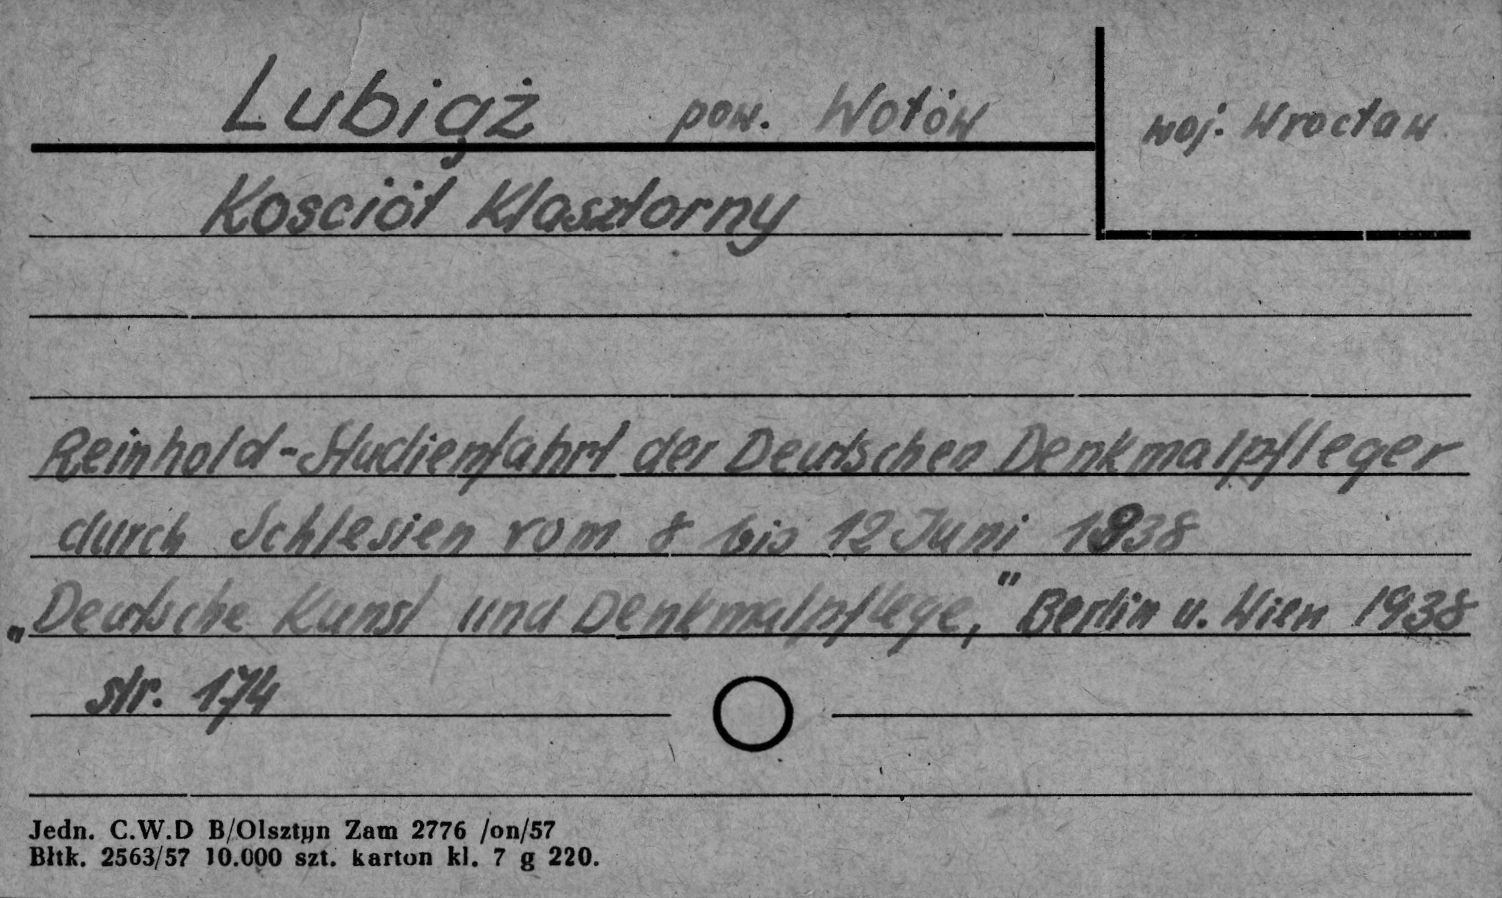 Lubiąż pow. Wołów woj. Wrocław
Kościół Klasztorny
Reinhold-Studienfahrt der Deutschen Denkmalpfleger
durch Schlesien vom 8 bis 12 Juni 1938
„Deutsche Kunst und Denkmalpflege," Berlin u. Wien 1938
str. 174
Jedn. C.W.D B/Olsztyn Zam 2776 /on/57
Błtk. 2563/57 10.000 szt. karton kl. 7 g 220.